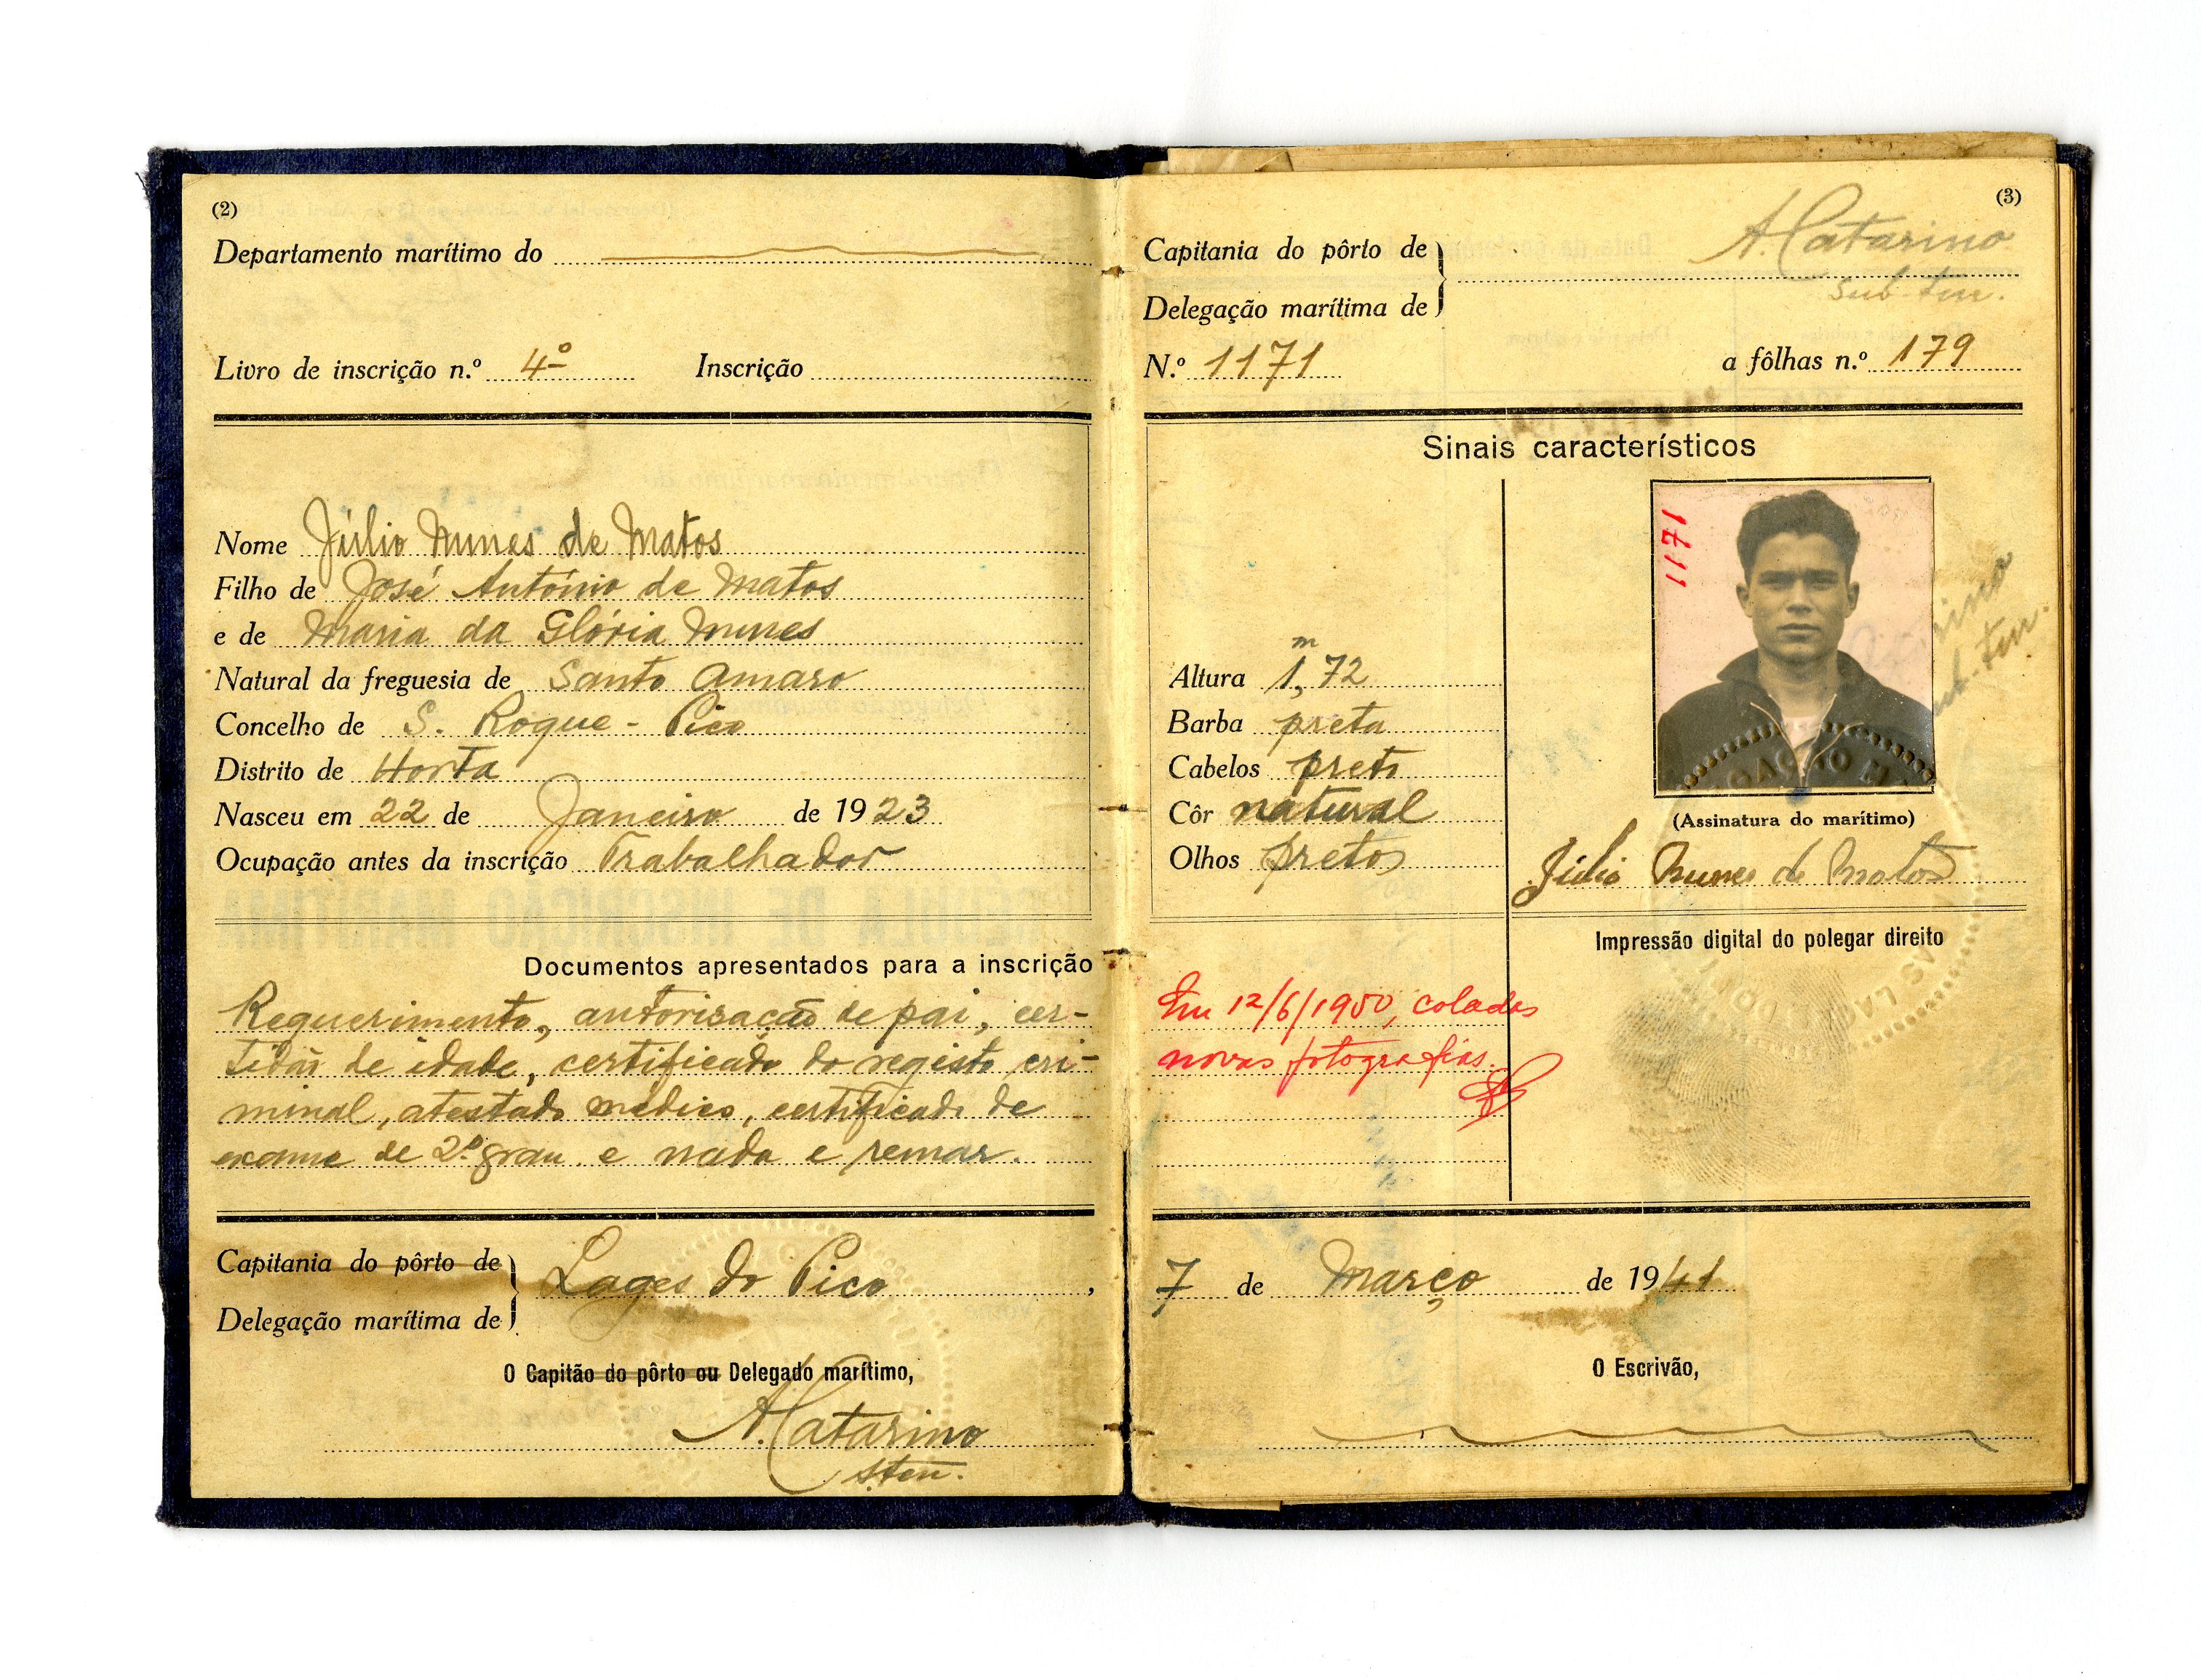 (2)
Departamento marítimo do
Livro de inscrição n.º 4º Inscrição
Nome Júlio Nunes de Matos
Filho de José António de Matos
e de Maria da Glória Nunes
Natural da freguesia de Santo Amaro
Concelho de S. Roque - Pico
Distrito de Horta
Nasceu em 22 de Janeiro de 1923
Ocupação antes da inscrição Trabalhador
Documentos apresentados para a inscrição
Requerimento, autorisação de pai, cer-
tidão de idade, certificado do registo cri-
minal, atestado médico, certificado de
exame de 2º grau e nada e remar.
Capitania do pôrto de
Delegação marítima de
Lages do Pico,
O Capitão do pôrto ou Delegado marítimo,
A. Catarino
s.ten.
(3)
A. Catarino
sub-ten.
Capitania do pôrto de
Delegação marítima de
N.º 1171 a fôlhas n.º 179
Sinais característicos
1171
Altura 1,72 m
Barba preta
Cabelos preto
Côr natural
Olhos pretos
(Assinatura do marítimo)
Júlio Nunes de Matos
Impressão digital do polegar direito
Em 12/6/1950, coladas
novas fotografias.
7 de Março de 1941
O Escrivão,